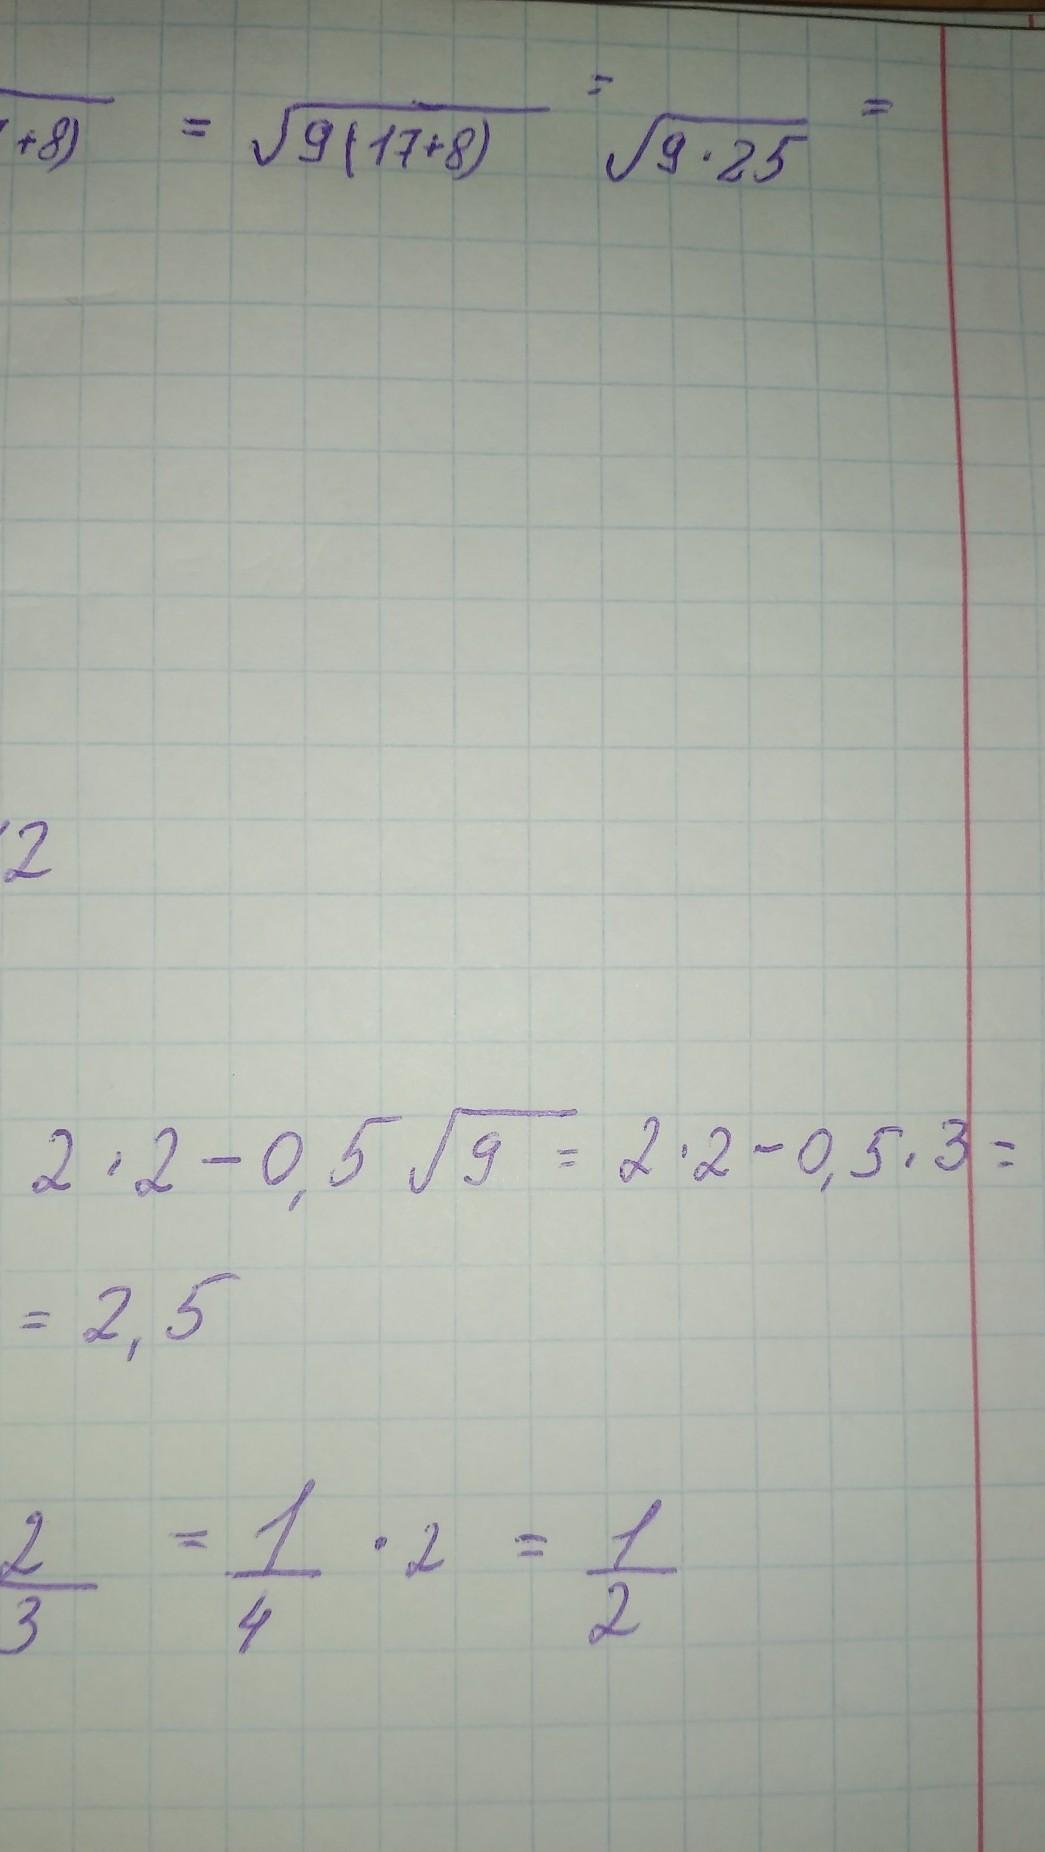 +8) = √9(17+8) = √9·25 =
2
2·2-0,5√9 = 2·2-0,5·3 =
= 2,5
2/3 = 1/4 · 2 = 1/2